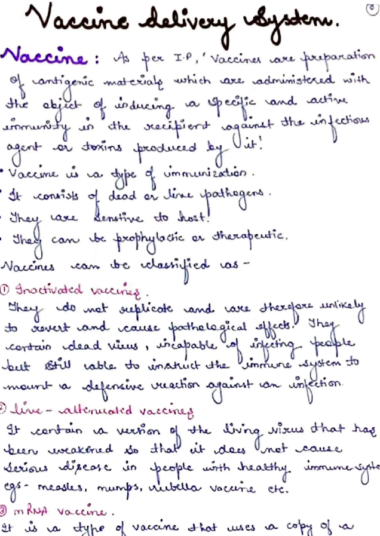 Vaccine delivery System.
Vaccine : As per I.P, 'Vaccines are preparation
of antigenic materials which are administered with
the object of inducing a specific and active
immunity in the recipient against the infectious
agent or toxins produced by it!
• Vaccine is a type of immunization.
• It consists of dead or live pathogens.
• They are senstive to host!
• They can be prophylactic or therapeutic.
Vaccines can be classified as -
① Inactivated vaccines.
They do not replicate and are therefore unlikely
to revert and cause pathological effects. They
contain dead virus, incapable of infecting people
but still able to instruct the immune system to
mount a defensive reaction against an infection.
② live - attenuated vaccines
It contain a version of the living virus that has
been weakened so that it does not cause
serious disease in people with healthy immune syste
egs - measles, mumps, rubella vaccine etc.
③ mRNA vaccine.
It is a type of vaccine that uses a copy of a